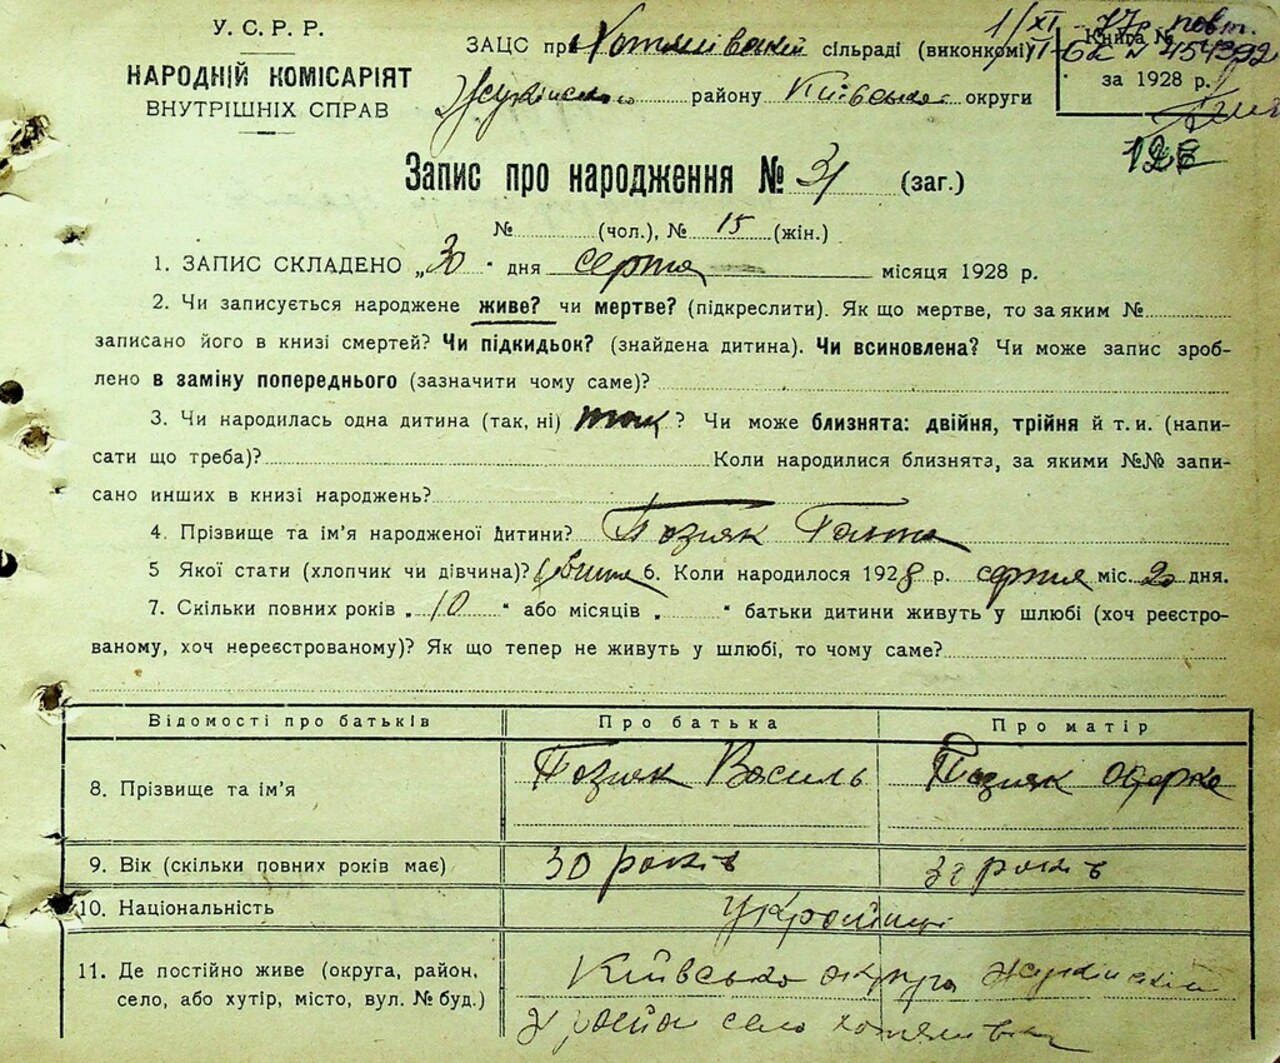 У. С. Р. Р.
НАРОДНІЙ КОМІСАРІЯТ
ВНУТРІШНІХ СПРАВ
ЗАЦС при сільраді (виконкомі)
району Київської округи
1/XI 77р. повт.
Книга №
за 1928 р.
Запис про народження № 31 (заг.)
№ (чол.), № 15 (жін.)
1. ЗАПИС СКЛАДЕНО „30“ дня серпня місяця 1928 р.
2. Чи записується народжене живе? чи мертве? (підкреслити). Як що мертве, то за яким №
записано його в книзі смертей? Чи підкидьок? (знайдена дитина). Чи всиновлена? Чи може запис зроб-
лено в заміну попереднього (зазначити чому саме)?
3. Чи народилась одна дитина (так, ні) так? Чи може близнята: двійня, трійня й т. и. (напи-
сати що треба)? Коли народилися близнята, за якими №№ запи-
сано инших в книзі народжень?
4. Прізвище та ім'я народженої дитини? Позняк Ганна
5 Якої стати (хлопчик чи дівчина)? 6. Коли народилося 1928 р. серпня міс. 20 дня.
7. Скільки повних років „10“ або місяців „ “ батьки дитини живуть у шлюбі (хоч реєстро-
ваному, хоч нереєстрованому)? Як що тепер не живуть у шлюбі, то чому саме?
Відомості про батьків Про батька Про матір
8. Прізвище та ім'я Позняк Василь Позняк Одарка
9. Вік (скільки повних років має) 30 років років
10. Національність Українці
11. Де постійно живе (округа, район,
село, або хутір, місто, вул. № буд.)
Київська округа Жукинский
район село